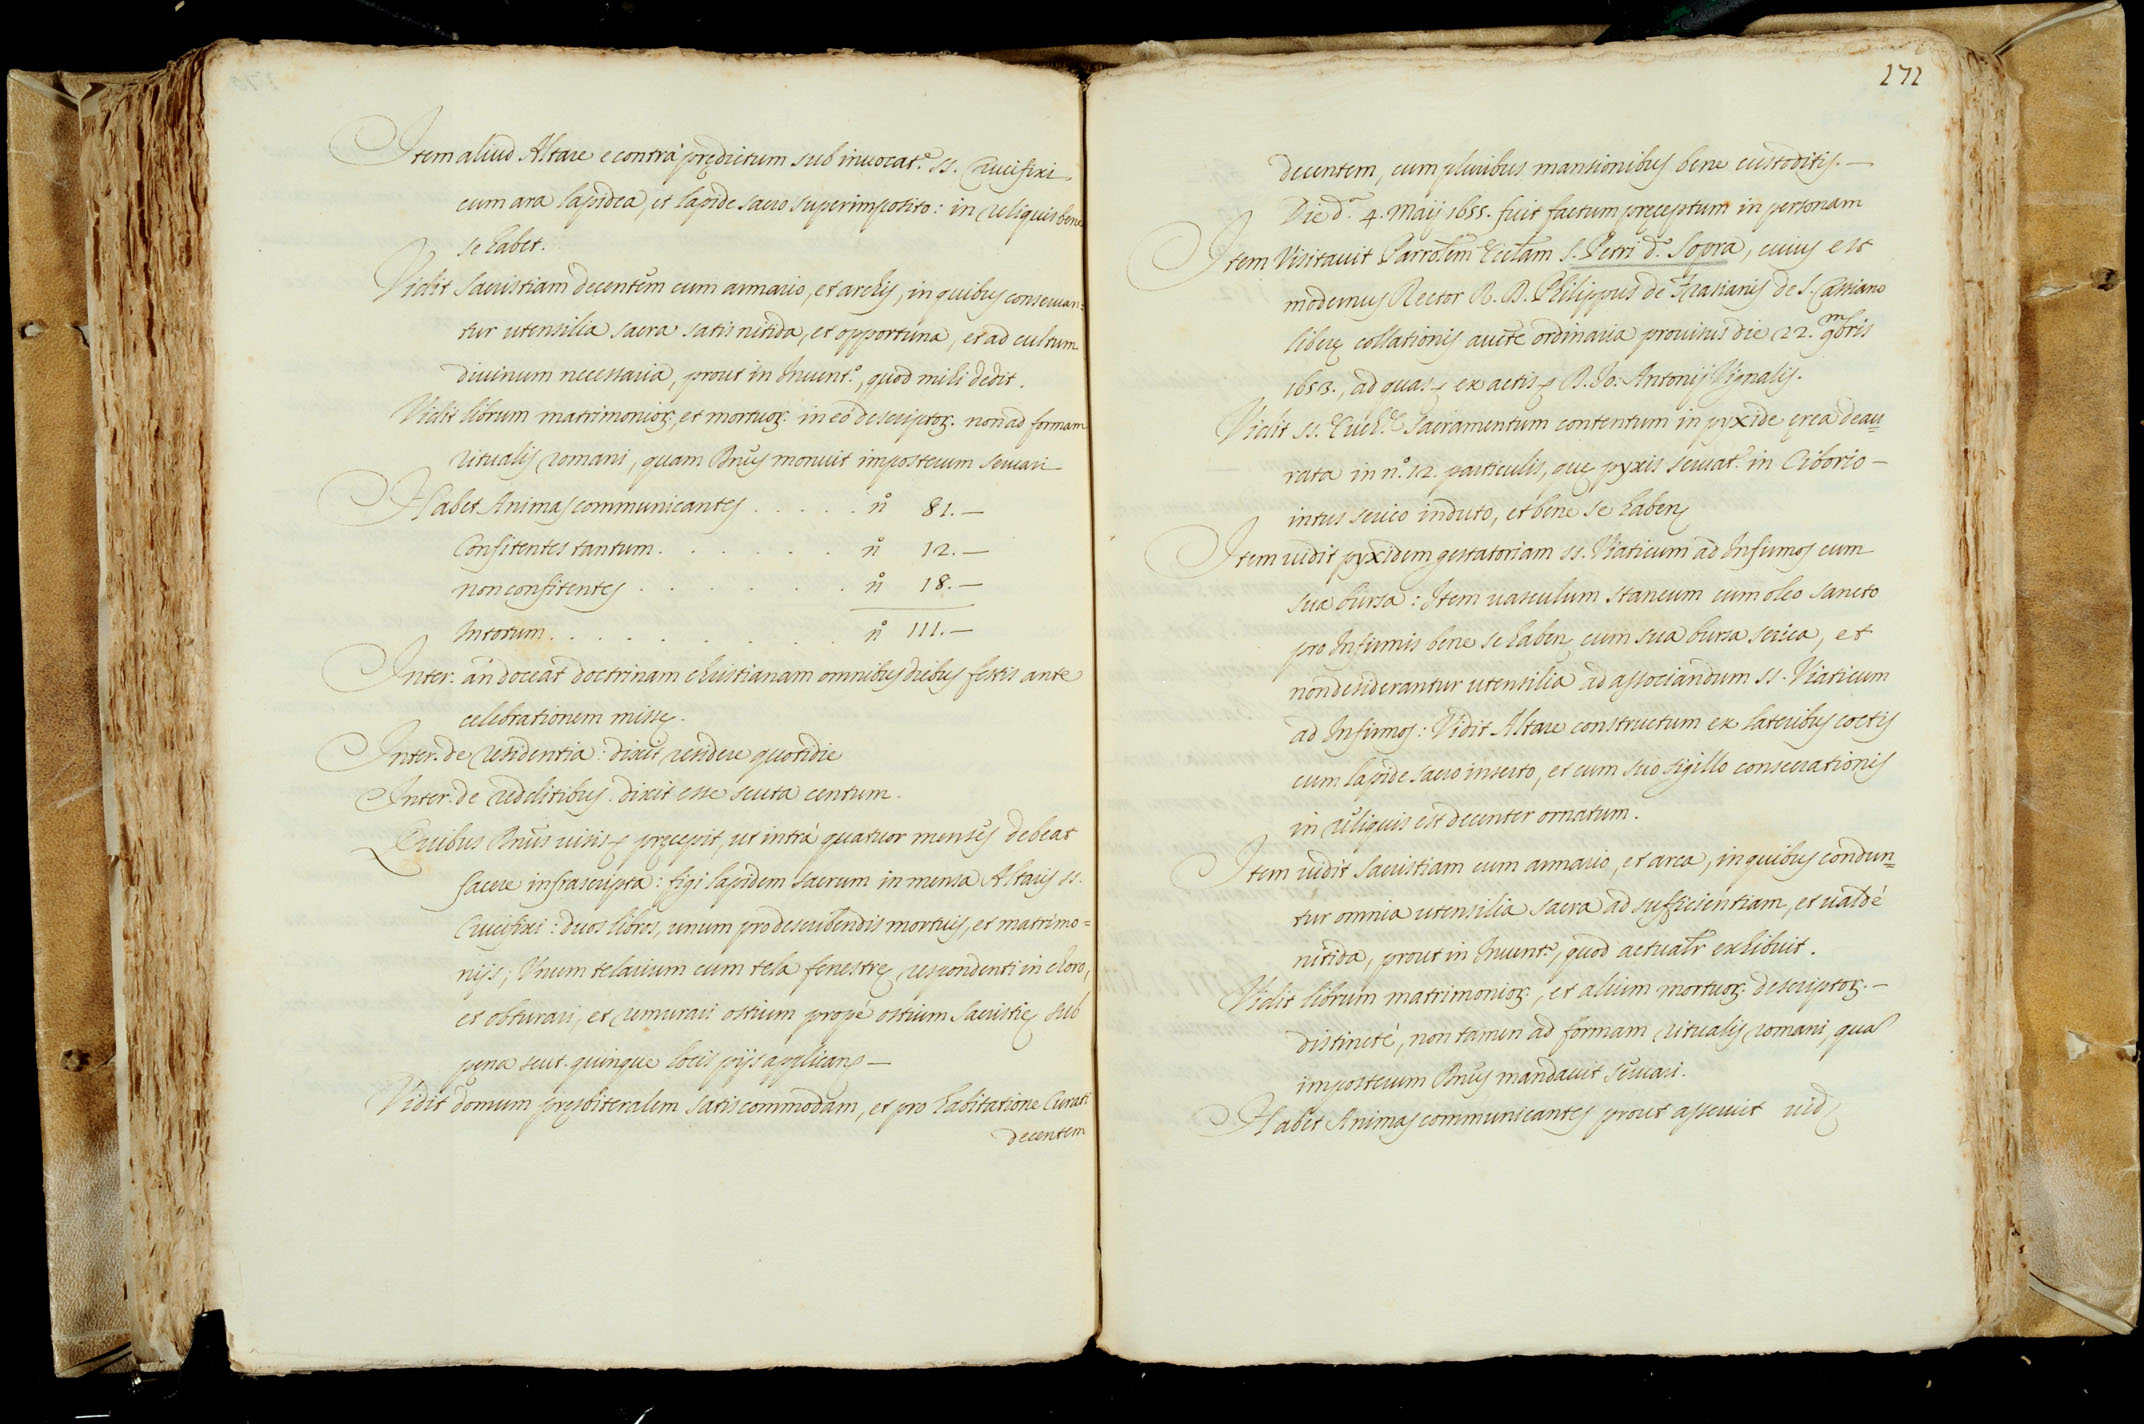 Item aliud Altare e contrà prędictum sub inuocat.e ss. Crucifixi
cum ara lapidea, et lapide sacro superimposito: in reliquis bene
se habet.
Vidit Sacristiam decentem cum armario, et archis, in quibus conseruan=
tur utensilia sacra satis nitida, et opportuna, et ad cultum
diuinum necessaria, prout in Inuent.o, quod mihi dedit.
Vidit librum matrimonior., et mortuor. in eo descriptor. non ad formam
ritualis romani, quam Dnũs monuit imposterum seruari
Habet Animas communicantes . . . . . n.o 81.—
Confitentes tantum . . . . . . n.o 12.—
non confitentes . . . . . . n.o 18.—
In totum . . . . . . . . n.o 111.—
Inter. an doceat doctrinam christianam omnibus diebus festis ante
celebrationem missę.
Inter. de residentia: dixit residere quotidie
Inter. de redditibus. dixit esse scuta centum.
Quibus Dnũs uisis pręcepit, ut intrà quatuor menses debeat
facere infrascripta: figi lapidem sacrum in mensa Altaris ss.
Crucifixi: duos libros, unum pro describendis mortuis, et matrimo=
nijs; Vnum telarium cum tela fenestrę respondenti in choro,
et obturari, et remurari ostium propè ostium Sacristię sub
pena scut. quinque locis pijs applican
Vidit domum pręsbiteralem satis commodam, et pro habitatione Curati
decentem
272
decentem, cum pluribus mansionibus bene custoditis.—
Die d.a 4. Maij 1655. fuit factum pręceptum in personam
Item Visitauit Parrolem Ecclam S. Petri d.o Sopra, cuius est
modernus Rector R. D. Philippus de Frasianis de S. Cassiano
liberę collationis aucte ordinaria prouisus die 22. 9mbris
1653., ad quas ex actis D. Jo: Antonij Vignalis.
Vidit ss. Euch.e Sacramentum contentum in pyxide ęrea deau=
rata in n.o 12. particulis, quę pyxis seruat.r in Ciborio—
intus serico induto, et bene se haben
Item uidit pyxidem gestatoriam ss. Viaticum ad Infirmos cum
sua bursa: Item uasculum staneum cum oleo sancto
pro Infirmis bene se haben cum sua bursa serica, et
non desiderantur utensilia ad associandum ss. Viaticum
ad Infirmos: Vidit Altare constructum ex lateribus coctis
cum lapide sacro inserto, et cum suo sigillo consecrationis
in reliquis est decenter ornatum.
Item uidit Sacristiam cum armario, et arca, in quibus condun=
tur omnia utensilia sacra ad sufficientiam, et ualdè
nitida, prout in Inuent.o, quod actualr exhibuit.
Vidit librum matrimonior., et alium mortuor. descriptor.—
distinctè, non tamen ad formam ritualis romani, quã
imposterum Dnũs mandauit seruari.
Habet Animas communicantes prout asseruit uid